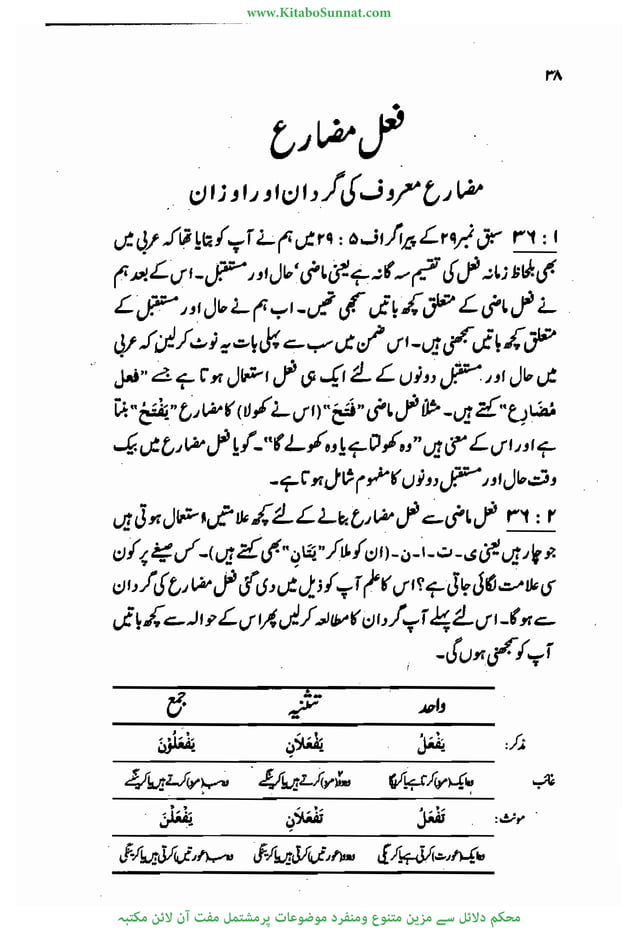 www.KitaboSunnat.com
۳۸
فعل مضارع
مضارع معروف کی گردان اور اوزان
۱ : ۳۶ سبق نمبر ۲۹ کے پیراگراف ۵ : ۲۹ میں ہم نے آپ کو بتایا تھا کہ عربی میں
بھی بلحاظ زمانہ فعل کی تقسیم سہ گانہ ہے یعنی ماضی، حال اور مستقبل۔ اس کے بعد ہم
نے فعل ماضی کے متعلق کچھ باتیں سمجھی تھیں۔ اب ہم نے حال اور مستقبل کے
متعلق کچھ باتیں سمجھنی ہیں۔ اس ضمن میں سب سے پہلی بات یہ نوٹ کرلیں کہ عربی
میں حال اور مستقبل دونوں کے لئے ایک ہی فعل استعمال ہوتا ہے جسے "فعل
مُضَارِع" کہتے ہیں۔ مثلاً فعل ماضی "فَتَحَ" (اس نے کھولا) کا مضارع "یَفْتَحُ" بنتا
ہے اور اس کے معنی ہیں "وہ کھولتا ہے یا وہ کھولے گا"۔ گویا فعل مضارع میں بیک
وقت حال اور مستقبل دونوں کا مفہوم شامل ہوتا ہے۔
۲ : ۳۶ فعل ماضی سے فعل مضارع بنانے کے لئے کچھ علامتیں استعمال ہوتی ہیں
جو چار ہیں یعنی ی۔ ت۔ ا۔ ن۔ (ان کو ملا کر "یَتَانِ" بھی کہتے ہیں)۔ کس صیغے پر کون
سی علامت لگائی جاتی ہے؟ اس کا علم آپ کو ذیل میں دی گئی فعل مضارع کی گردان
سے ہوگا۔ اس لئے پہلے آپ گردان کا مطالعہ کرلیں پھر اس کے حوالہ سے کچھ باتیں
آپ کو سمجھنی ہوں گی۔
واحد تثنیہ جمع
مذکر: یَفْعَلُ یَفْعَلَانِ یَفْعَلُوْنَ
غائب وہ ایک (مرد) کرتا ہے یا کریگا وہ دو (مرد) کرتے ہیں یا کرینگے وہ سب (مرد) کرتے ہیں یا کرینگے
مونث: تَفْعَلُ تَفْعَلَانِ یَفْعَلْنَ
وہ ایک (عورت) کرتی ہے یا کریگی وہ دو (عورتیں) کرتی ہیں یا کرینگی وہ سب (عورتیں) کرتی ہیں یا کرینگی
محکم دلائل سے مزین متنوع ومنفرد موضوعات پر مشتمل مفت آن لائن مکتبہ